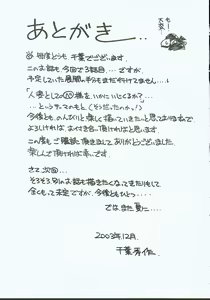 あとがき..
毎度どうも、千葉でございます。
このお話も今回で3話目...ですが、
予定していた展開の半分もまだやれてません....!
「人妻としての をいかにいたぶるか?」
...と、いうテーマのもと、(そうだったのか!)
今後とも、のんびりと楽しく描いていきたいと思っておりますで
よろしければ、お付き合い頂ければと思います
この度もご購読頂きましてありがとうございました。
楽しんで頂ければ幸いです。
さて、次回...
そろそろ別のお話も描きたくなってきたりもして
全くもって未定ですが、今後ともひとつ・・・
では、また夏に.....
2003年12月.
千葉秀作.
も〜
大変